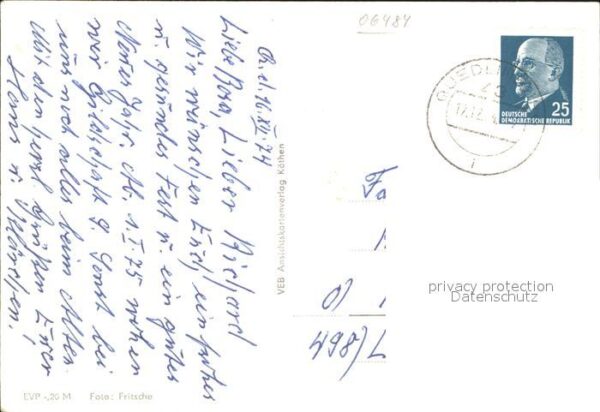 06484
Qu. d. 16. XII. 74
Liebe Dora, Lieber Richard
Wir wünschen Euch ein frohes
u. gesundes Fest u. ein gutes
Neues Jahr. Ab 1.I.75 wohnen
wir Gutschaft 9. Sonst bei
uns noch alles beim Alten.
Mit den herzl. Grüßen Eurer
Hans u. Klärchen.
VEB Ansichtskartenverlag Köthen
EVP -,20 M Foto: Fritsche
QUEDLIN
17.12.
DEUTSCHE
DEMOKRATISCHE REPUBLIK
25
498/
privacy protection
Datenschutz